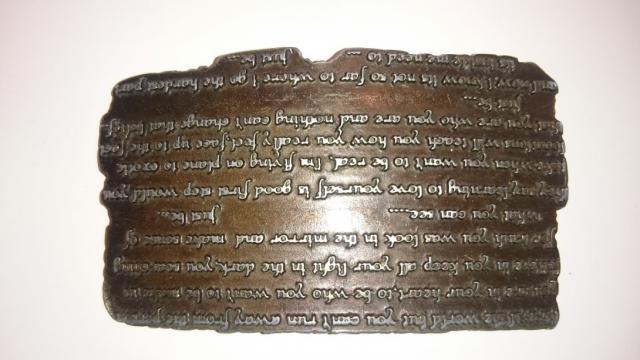 the world but you can't run away from the
in your heart, to be who you want to be
in you keep all your light in the dark, you searching
for truth you was look in the mirror and make sense of
What you can see.... Just be...
they say learning to love yourself is good first step would you
when you want to be real, I'm flying on plane to exotic
locations will teach you how you really feel, face up to the
that you are who you are and nothing can't change that
Just be...
and now, I know its not so far to where I go the hardest part
its inside me need to ... Just be ...